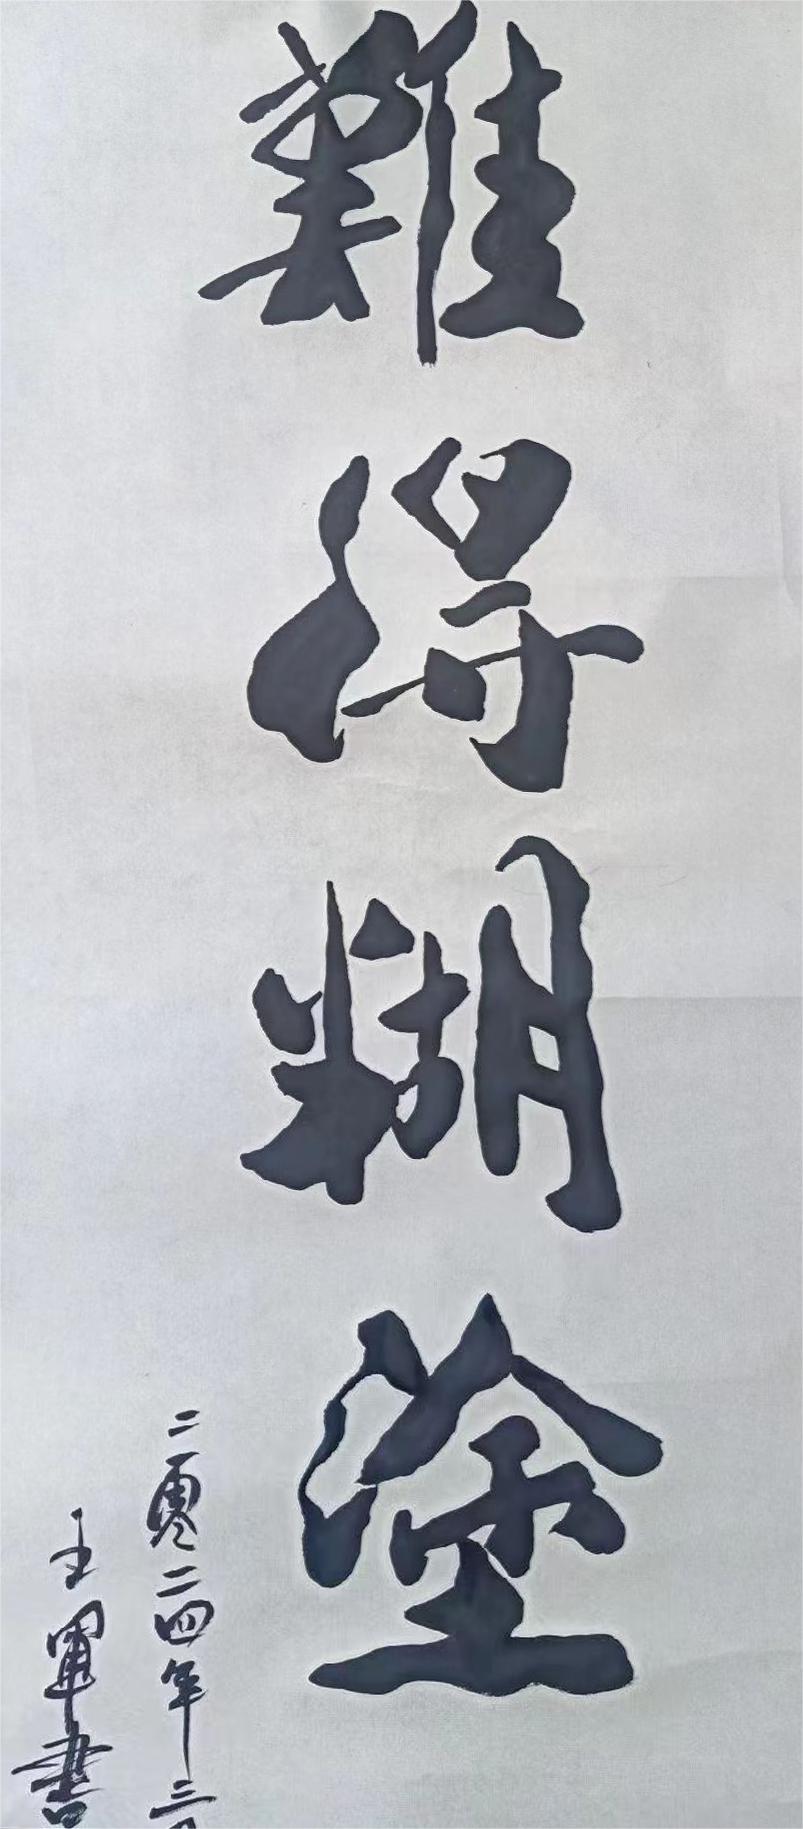 難得糊塗
二零二四年三
王軍書